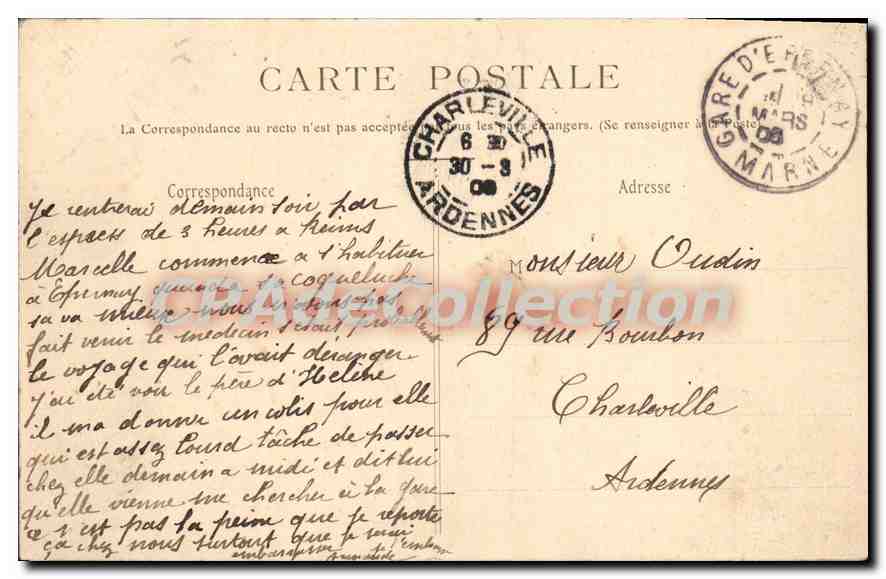 CARTE POSTALE
La Correspondance au recto n'est pas acceptée par tous les pays étrangers. (Se renseigner à la Poste)
GARE D'EPERNAY
MARS
MARNE
CHARLEVILLE
6 30
30 - 3
08
ARDENNES
Correspondance
Adresse
Je rentrerai demain soir par
l'express de 3 heures à Reims
Marcelle commence a s'habituer
à Epernay quand sa coqueluche
sa va mieux nous n'avons pas
fait venir le medecin s'était probablement
le voyage qui l'avait déranger
J'ai été voir le père d'Helène
il m'a donner un colis pour elle
qui est assez lourd tâche de passer
chez elle demain a midi et dit lui
qu'elle vienne me chercher à la gare
ce n'est pas la peine que je reporte
ça chez nous surtout que je serai
embarrasser
Monsieur Oudin
89 rue Bourbon
Charleville
Ardennes
CHAdeCollection